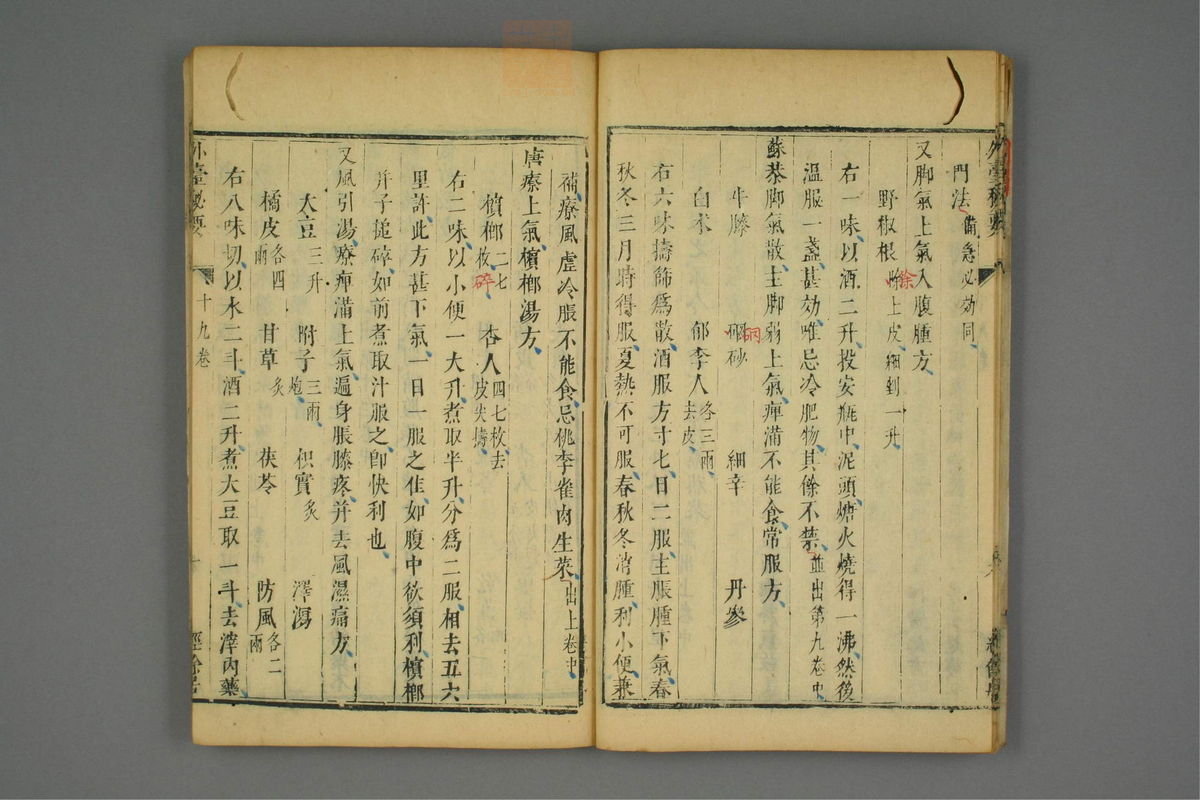 門法備急必効同
又脚氣上氣入腹腫方
野椒根除上皮細剉一升
右一味以酒二升投安瓶中泥頭煻火燒得一沸然後
溫服一盞甚効唯忌冷肥物其餘不禁並出第九卷中
蘇恭脚氣散主脚弱上氣痺滿不能食常服方
牛膝 硇砂 細辛 丹參
白朮 郁李人各三兩去皮
右六味擣篩為散酒服方寸匕日二服主脹腫下氣春
秋冬三月時得服夏熱不可服春秋冬消腫利小便兼
補療風虛冷脹不能食忌桃李雀肉生菜出上卷中
唐療上氣檳榔湯方
檳榔二七枚碎 杏人四七枚去皮尖擣
右二味以小便一大升煮取半升分為二服相去五六
里許此方甚下氣一日一服之佳如腹中欲須利檳榔
并子搥碎如前煮取汁服之卽快利也
又風引湯療痺滿上氣遍身脹膝疼并去風濕痛方
大豆三升 附子三兩炮 枳實炙 澤瀉
橘皮各四兩 甘草炙 茯苓 防風各二兩
右八味切以水二斗酒二升煮大豆取一斗去滓內藥
外臺秘要
十九卷
經餘居